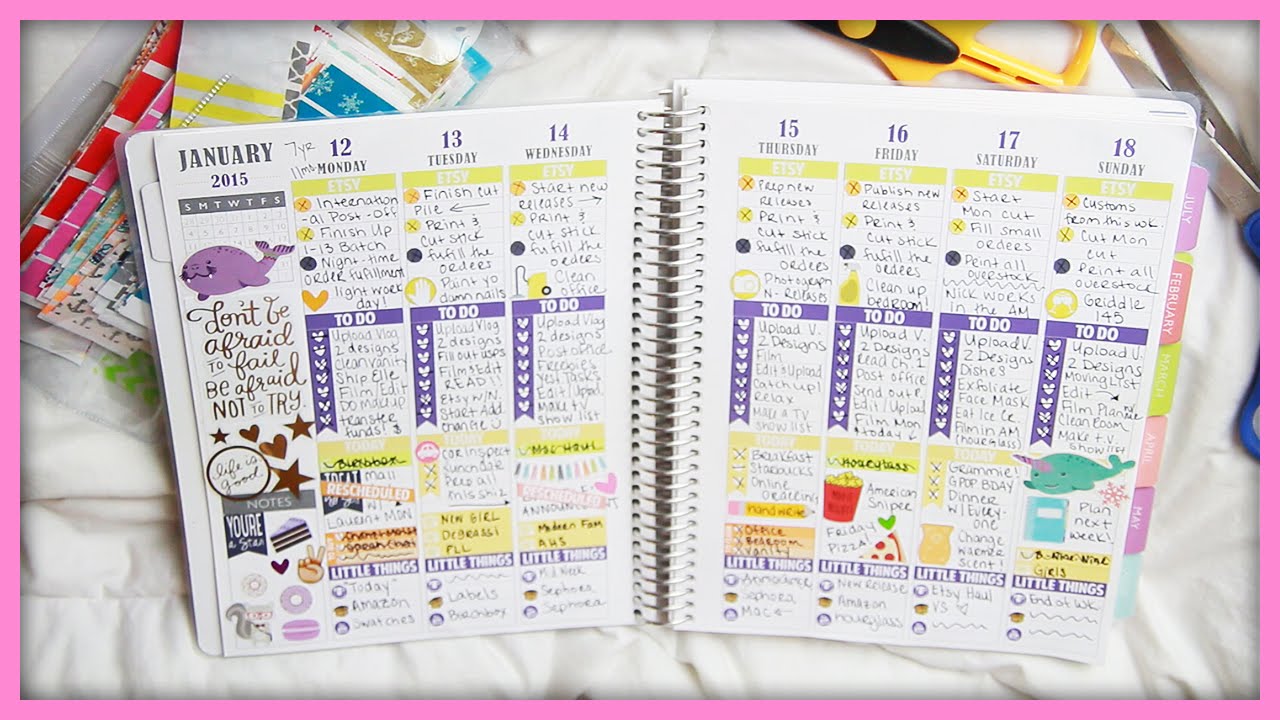 JANUARY
2015
S M T W T F S
7yr
11mo
Don't be
afraid
to fail.
Be afraid
NOT to TRY.
life is
good
NOTES
YOU'RE
a Star
12
MONDAY
ETSY
Internation
-al Post-Off.
Finish Up
1-13 Batch
Night-time
order fulfillment
light work
day!
TO DO
Upload Vlog
2 designs
Clean Vanity
Ship Elle
Film/Edit
Do makeup
transfer
funds! $
TODAY
Birchbox
mall
RESCHEDULED
w/
Lauren + MON
LITTLE THINGS
"Today"
Amazon
Swatches
13
TUESDAY
ETSY
Finish cut
Pile
Print &
Cut stick
fulfill the
orders
Paint to
damn nails
TO DO
Upload Vlog
2 designs
Fill out USPS
Film/Edit
READ!!
Etsy W/N.
Start Add.
change
TODAY
car inspect
Lunch date
Prep all
mis shiz
NEW GIRL
DEGRASSI
PLL
LITTLE THINGS
Labels
Birchbox
14
WEDNESDAY
ETSY
Start new
releases
Print &
Cut stick
fulfill the
orders
Clean
office
TO DO
Upload Vlog
2 designs
Post office
Freebies
Yest. Tasks
Edit/Upload
Make tv
show list
TODAY
Mac Haul
RESCHEDULED
ANNOUNCEMENT
Modern Fam
AHS
LITTLE THINGS
Mid Week
Sephora
Sephora
15
THURSDAY
ETSY
Prep new
releases
Print
Cut stick
fulfill the
orders
Photograph
N-Releases
TO DO
Upload V.
2 Designs
Film
Edit & Upload
Catch up!
Relax
Make a TV
show list
TODAY
Breakfast
Starbucks
Online
ordering
hand write
Office
Bedroom
Vanity
LITTLE THINGS
Sephora
Mac
16
FRIDAY
ETSY
Publish new
Releases
Print &
Cut stick
fulfill the
orders
Clean up
bedroom!
TO DO
Upload V.
2 Designs
Read Ch. 1
Post office
Send out P.
Edit/Upload
Film Mon
today
TODAY
Hourglass
American
Sniper
Friday
Pizza!
LITTLE THINGS
New Release
Amazon
hourglass
17
SATURDAY
ETSY
Start
Mon cut
Fill small
orders
Print all
overstock
Nick works
In the AM
TO DO
Upload V.
2 Designs
Dishes
Exfoliate
Face Mask
Eat Ice Cr.
Film in AM
(hourglass)
TODAY
Grammie!
GPOP BDAY
Dinner
w/ Every-
one
Change
warmer
scent!
LITTLE THINGS
Etsy Haul
VS
18
SUNDAY
ETSY
Customs
from this wk.
Cut Mon
cut
Print all
overstock
Griddle
145
TO DO
Upload V.
2 Designs
Moving LIST
Edit
Film Planner
Clean Room
Make t.v.
show list
Plan
next
week!
Girls
LITTLE THINGS
End of wk
JULY
FEBRUARY
MARCH
APRIL
MAY